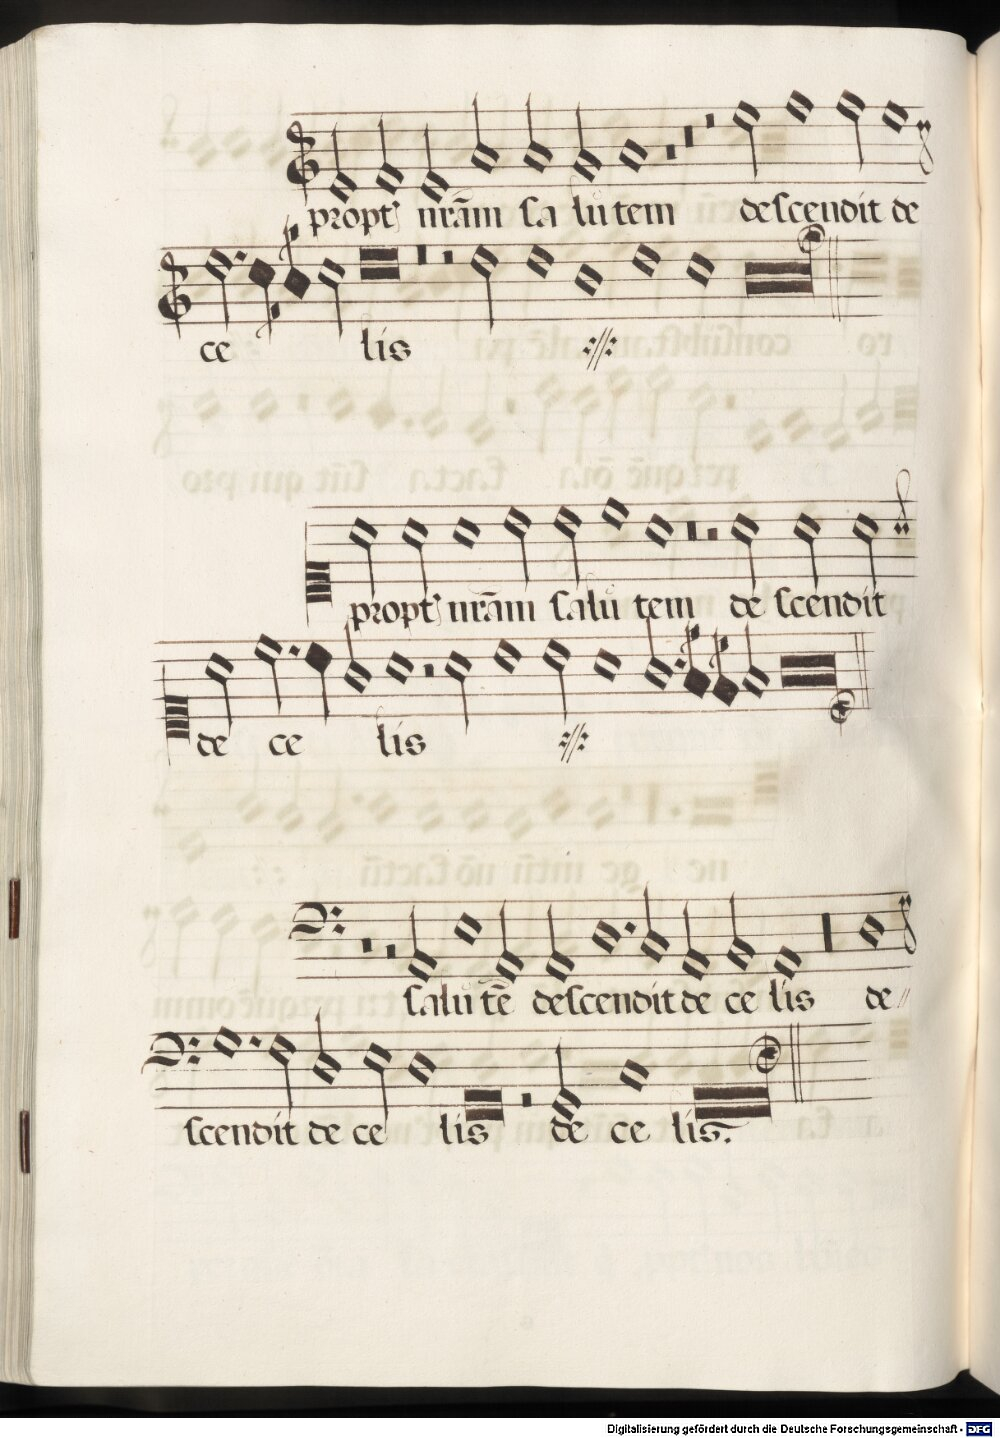 propt nrām sa lu tem descendit de
ce lis
propt nrām salu tem de scendit
de ce lis
salu tē descendit de ce lis de
scendit de ce lis de ce lis.
Digitalisierung gefördert durch die Deutsche Forschungsgemeinschaft - DFG